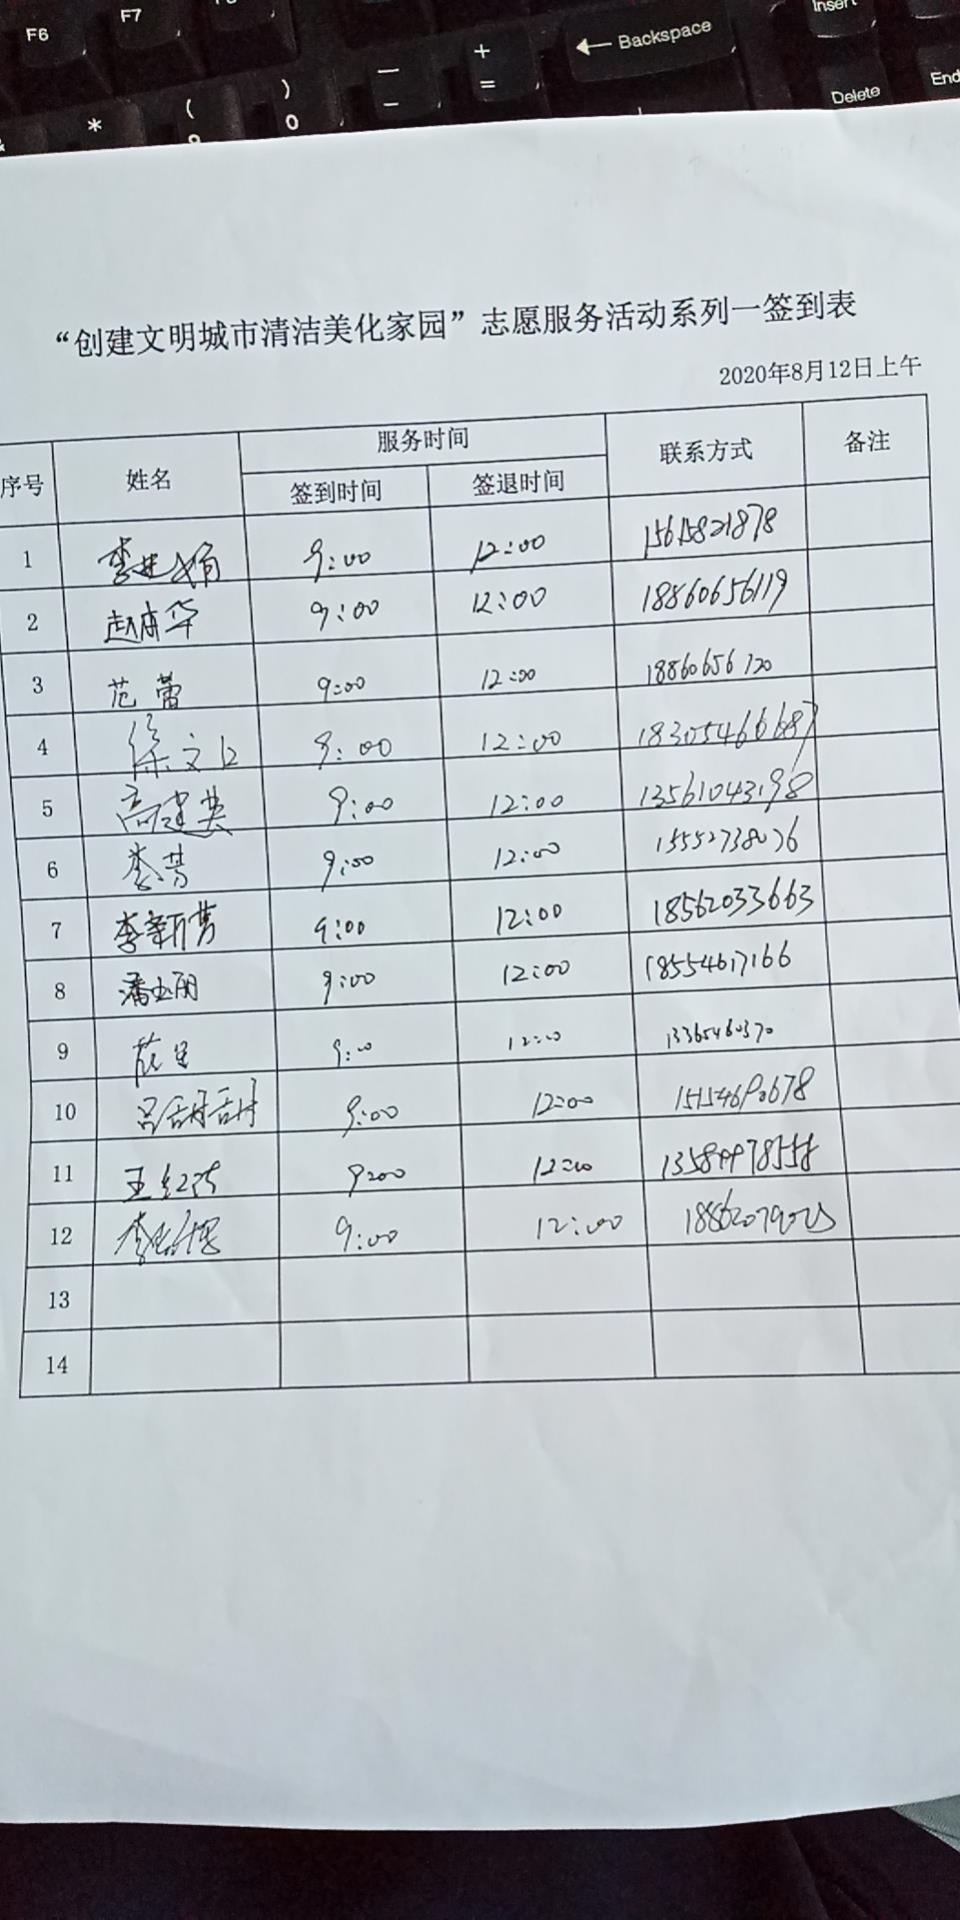 F6 F7
← Backspace Insert
Delete End
* ( ) 0 — - + =
“创建文明城市清洁美化家园”志愿服务活动系列一签到表
2020年8月12日上午
序号 姓名 服务时间 联系方式 备注
签到时间 签退时间
1 9:00 12:00 15615821878
2 赵春华 9:00 12:00 18860656119
3 范蕾 9:00 12:00 18860656120
4 徐文 9:00 12:00 18305466687
5 高建英 9:00 12:00 13561043198
6 李芳 9:00 12:00 15552738076
7 李新芳 9:00 12:00 18562033663
8 潘玉丽 9:00 12:00 18554617166
9 9:00 12:00 13365460370
10 吕甜甜 9:00 12:00 15154690678
11 王红 9:00 12:00
12 李 9:00 12:00
13
14